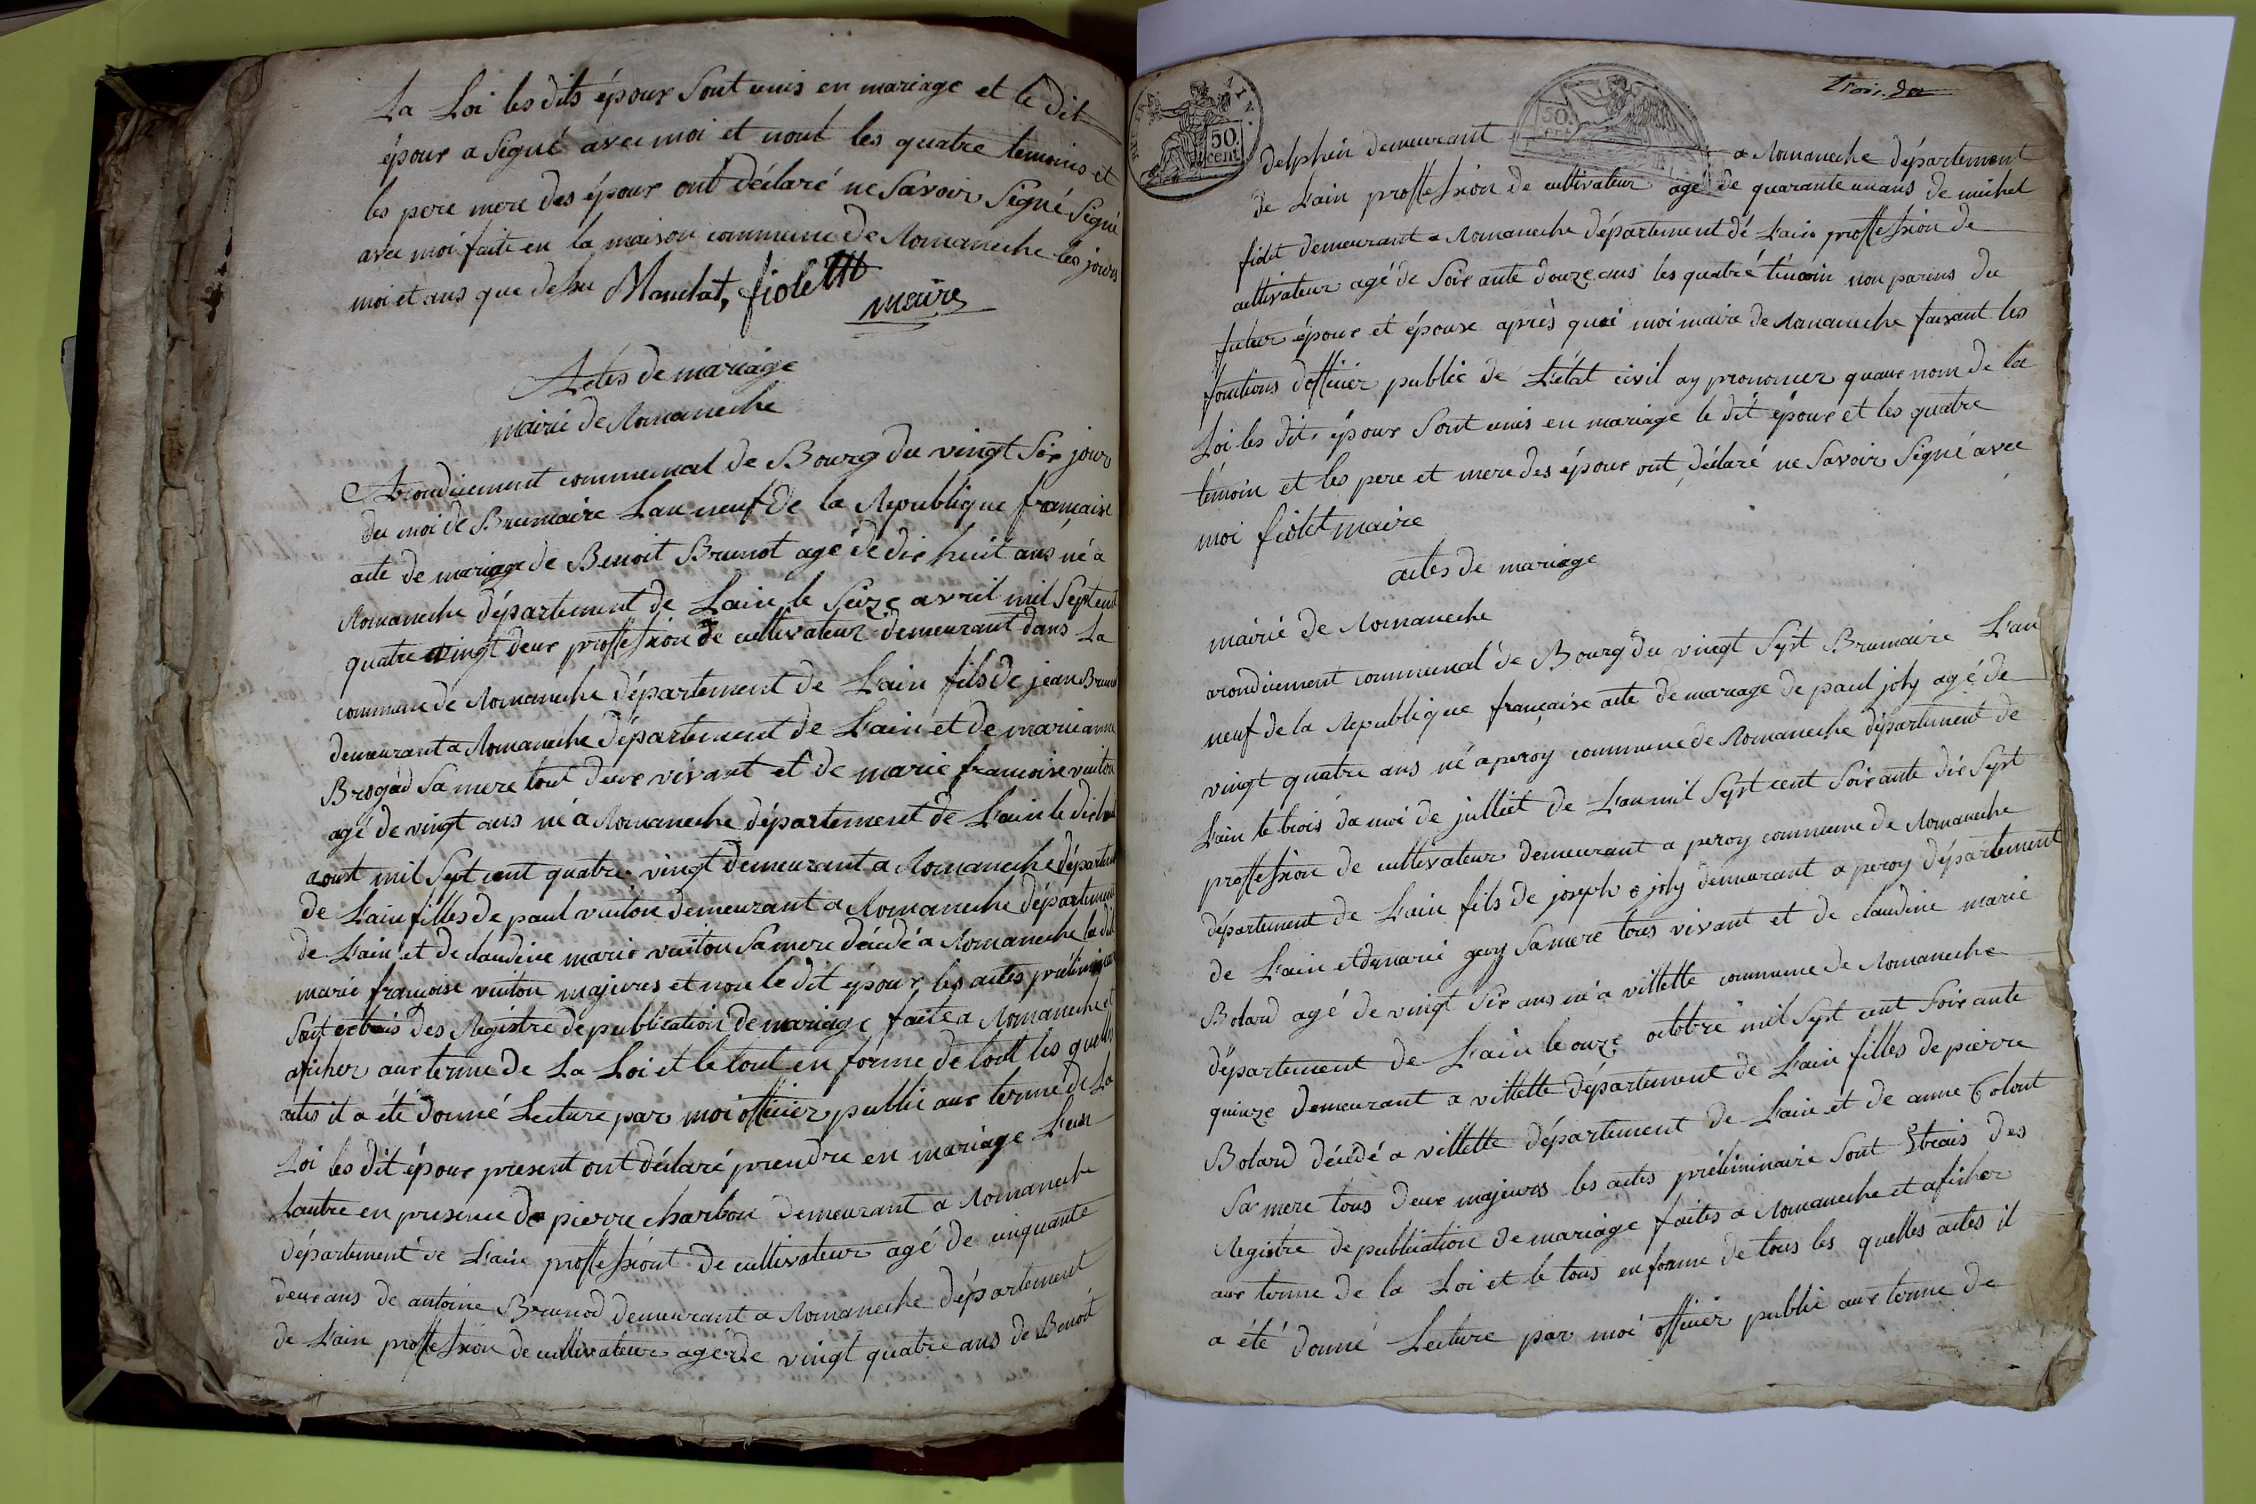 La Loi les dits épour Sont unis en mariage et le dit
épour a Signé avec moi et nont les quatre temoins et
les pere mere des épour ont déclaré ne Savoir Signé Signé
avec moi faite en la maison commune de Romaneche les jours
moi et ans que dessu Manchat, fiolet
maire
Actes de mariage
mairie de Romaneche
Arondicement communal de Bourg du vingt Six jour
du moi de Brumaire Lan neuf de la Republique française
acte de mariage de Benoit Brunot agé de dix huit ans né a
Romaneche département de Lain le Seize avril mil Septcent
quatre vingt deux proffession de cultivateur demeurant dans La
commune de Romaneche département de Lain fils de jean Brunod
demeurant a Romaneche département de Lain et de marie anne
Brogad Sa mere tout deux vivant et de marie françoise vuiton
agé de vingt ans né a Romaneche département de Lain le dix huit
aoust mil Sept cent quatre vingt demeurant a Romaneche département
de Lain filles de paul vuiton demeurant a Romaneche département
de Lain et de claudine marie vuiton Sa mere décédé a Romaneche la dite
marie françoise vuiton majeures et non le dit épour les actes préliminaire
Sont extrais des Registre de publication de mariage faite a Romaneche et
aficher aux terme de La Loi et le tout en forme de toutt les quelles
actes il a été donné Lecture par moi officier public aux terme de La
Loi les dit épour present ont déclaré prendre en mariage L'eun
lautre en presence de pierre charbon demeurant a Romaneche
département de Lain proffessiont de cultivateur agé de cinquante
deux ans de antoine Brunod demeurant a Romaneche département
de Lain proffession de cultivateur agé de vingt quatre ans de Benoit
50 cent
50 cent
Trois.
Delphin demeurant a Romaneche département
de Lain proffession de cultivateur agé de quarante un ans de michel
fiolet demeurant a Romaneche département de Lain proffession de
cultivateur agé de Soixante douze ans les quatre témoin non parens du
futur épour et épouse après quoi moi maire de Romaneche faisant les
fonctions d'officier public de L'état civil ay prononcer quaux nom de la
Loi les dits épour Sont unis en mariage le dit épour et les quatre
témoin et les pere et mere des épour ont déclaré ne Savoir Signé avec
moi fiolet maire
actes de mariage
mairie de Romaneche
arondicement communal de Bourg du vingt Sept Brumaire L'an
neuf de la Republique française acte de mariage de paul joly agé de
vingt quatre ans né a peroy commune de Romaneche département de
Lain le trois du moi de julliet de L'an mil Sept cent Soixante dix Sept
proffession de cultivateur demeurant a peroy commune de Romaneche
département de Lain fils de joseph joly demeurant a peroy département
de Lain et de marie guy Sa mere tous vivant et de claudine marie
Bolard agé de vingt Six ans né a villette commune de Romaneche
département de Lain le onze octobre mil Sept cent Soixante
quinze demeurant a villette département de Lain filles de pierre
Bolard décédé a villette département de Lain et de anne Colont
Sa mere tous deux majeures les actes préliminaire Sont Extrais des
Registre de publication de mariage faites a Romaneche et aficher
aux terme de la Loi et le tous en forme de tous les quelles actes il
a été donné Lecture par moi officier public aux terme de